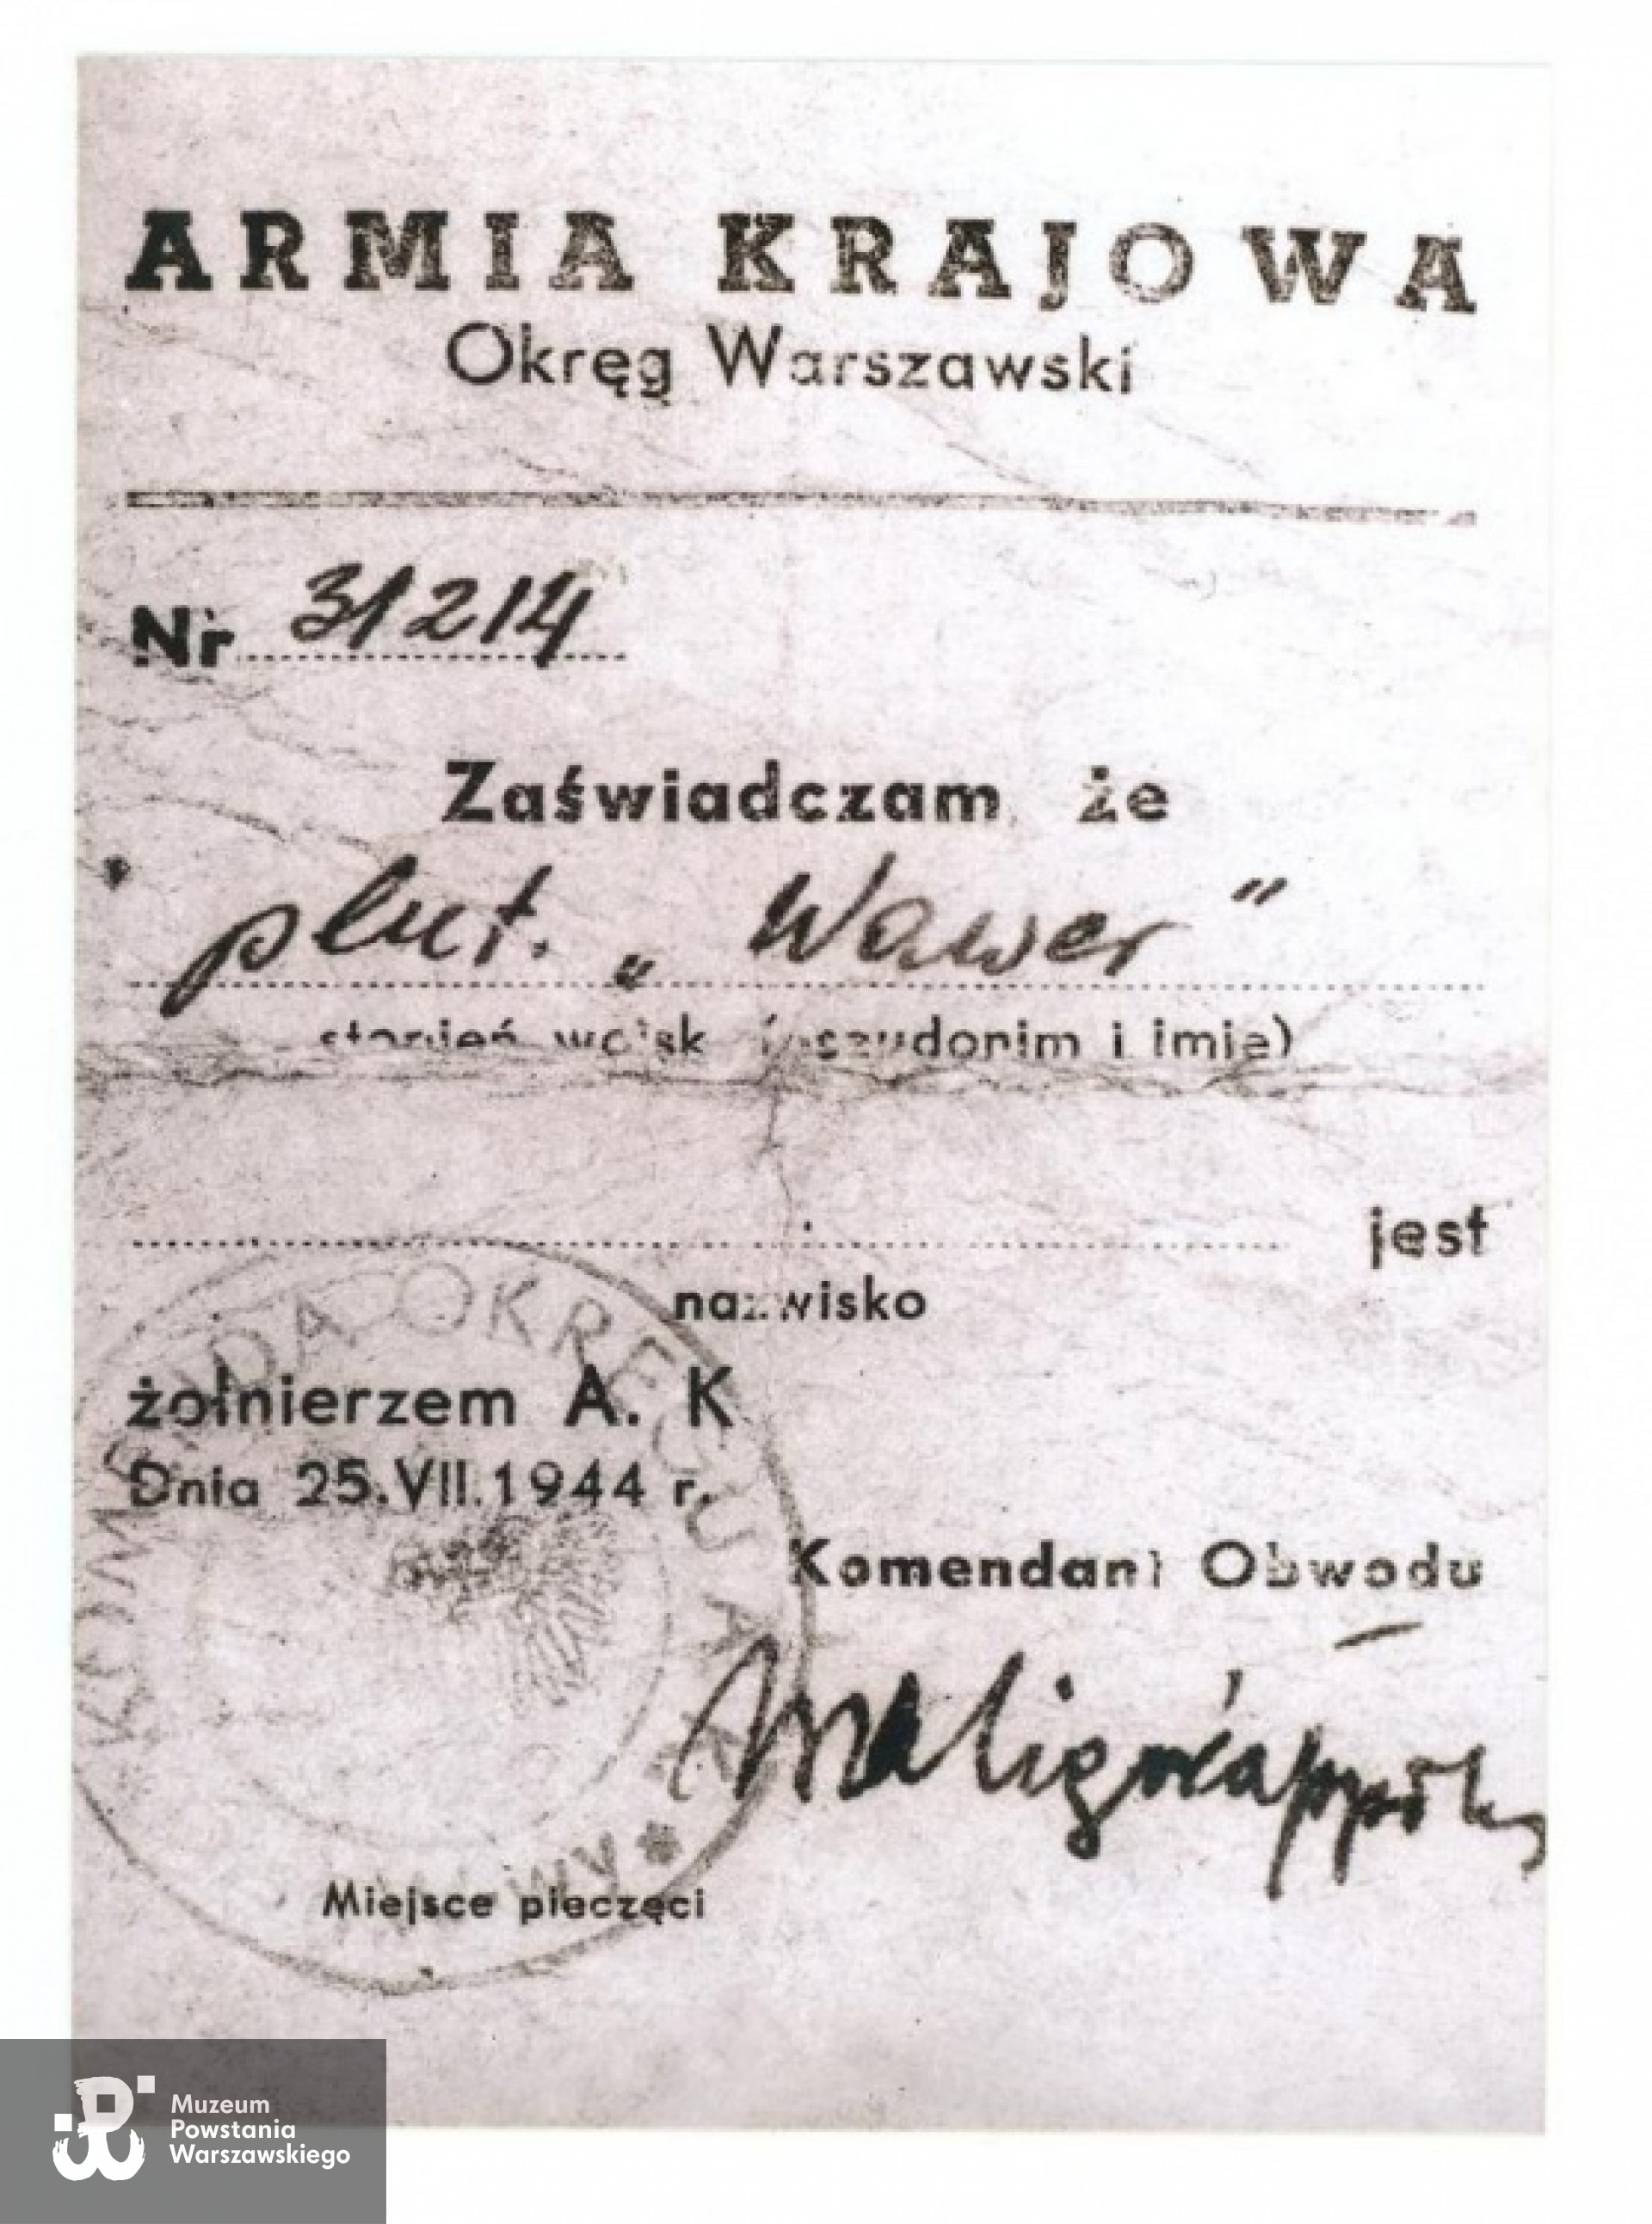 ARMIA KRAJOWA
Okręg Warszawski
Nr 31214
Zaświadczam że
plut. „Wawer”
stopień wojsk (pszudonim i imię)
jest
nazwisko
żołnierzem A. K
Dnia 25.VII.1944 r.
Komendant Obwodu
KOMENDA OKRĘGU A K *
Miejsce pieczęci
Muzeum
Powstania
Warszawskiego